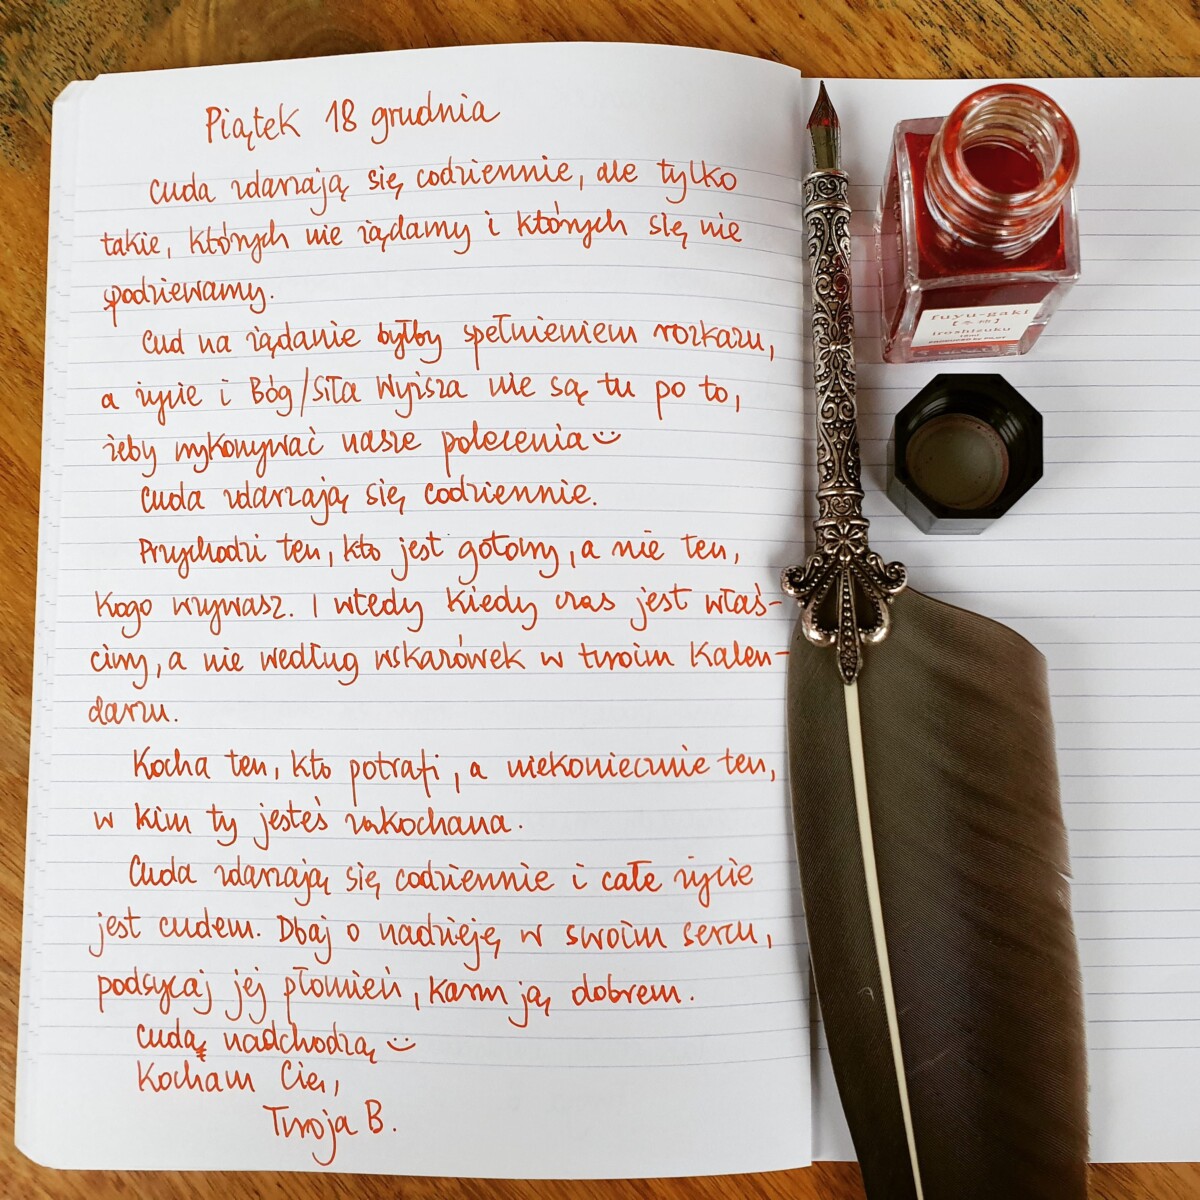 Piątek 18 grudnia
Cuda zdarzają się codziennie, ale tylko
takie, których nie żądamy i których się nie
spodziewamy.
Cud na żądanie byłby spełnieniem rozkazu,
a życie i Bóg/Siła Wyższa nie są tu po to,
żeby wykonywać nasze polecenia
Cuda zdarzają się codziennie.
Przychodzi ten, kto jest gotowy, a nie ten,
kogo wzywasz. I wtedy kiedy czas jest właś-
ciwy, a nie według wskazówek w twoim kalen-
darzu.
Kocha ten, kto potrafi, a niekoniecznie ten,
w kim ty jesteś zakochana.
Cuda zdarzają się codziennie i całe życie
jest cudem. Dbaj o nadzieję w swoim sercu,
podsycaj jej płomień, karm ją dobrem.
Cuda nadchodzą
Kocham Cię,
Twoja B.
fuyu-gaki
iroshizuku